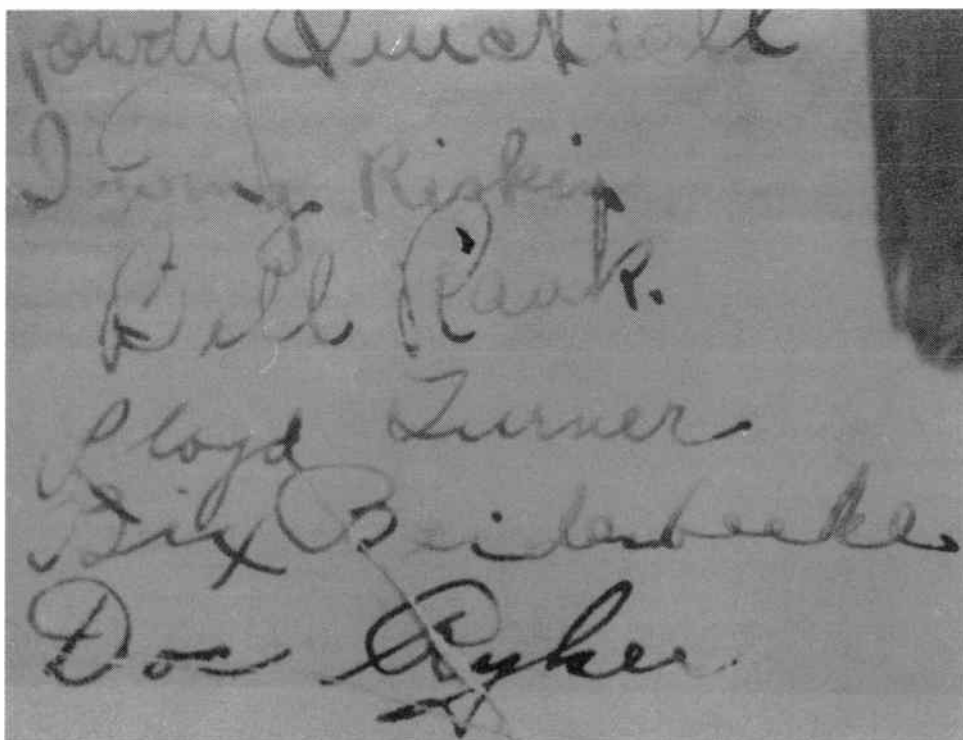 Howdy Quicksell
Irving Riskin
Bill Rank.
Lloyd Turner
Bix Beiderbecke
Doc Ryker